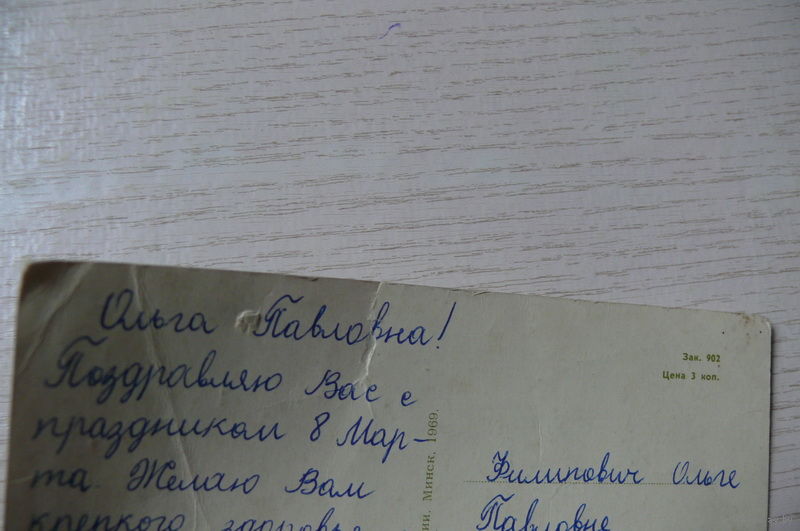 Ольга Павловна!
Поздравляю Вас с
праздником 8 Мар-
та. Желаю Вам
крепкого здоровья
Зак. 902
Цена 3 коп.
Минск, 1969.
Филипович Ольге
Павловне